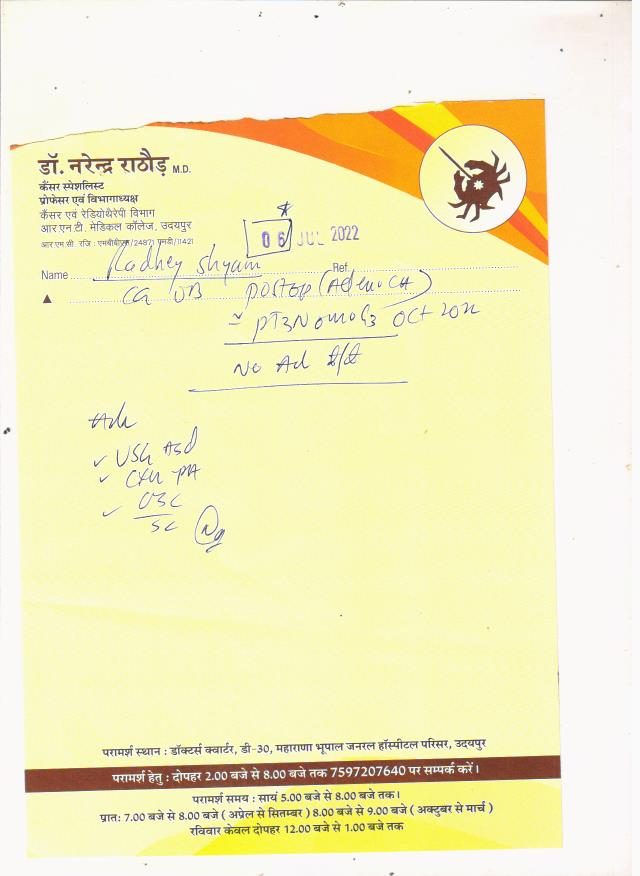 डॉ. नरेन्द्र राठौड़ M.D.
कैंसर स्पेशलिस्ट
प्रोफेसर एवं विभागाध्यक्ष
कैंसर एवं रेडियोथैरेपी विभाग
आर.एन.टी. मेडिकल कॉलेज, उदयपुर
आर.एम.सी. रजि : एमबीबीएस/24871 एमडी/11421
06 JUL 2022
Name Radhey Shyam Ref.
Ca UB postop (Adeno CA)
pT3N0M0G3 Oct
No Ad
Adv
USG Abd
CXR PA
CBC
SC
परामर्श स्थान : डॉक्टर्स क्वार्टर, डी-30, महाराणा भूपाल जनरल हॉस्पीटल परिसर, उदयपुर
परामर्श हेतु : दोपहर 2.00 बजे से 8.00 बजे तक 7597207640 पर सम्पर्क करें।
परामर्श समय : सायं 5.00 बजे से 8.00 बजे तक।
प्रात: 7.00 बजे से 8.00 बजे ( अप्रेल से सितम्बर ) 8.00 बजे से 9.00 बजे ( अक्टुबर से मार्च )
रविवार केवल दोपहर 12.00 बजे से 1.00 बजे तक